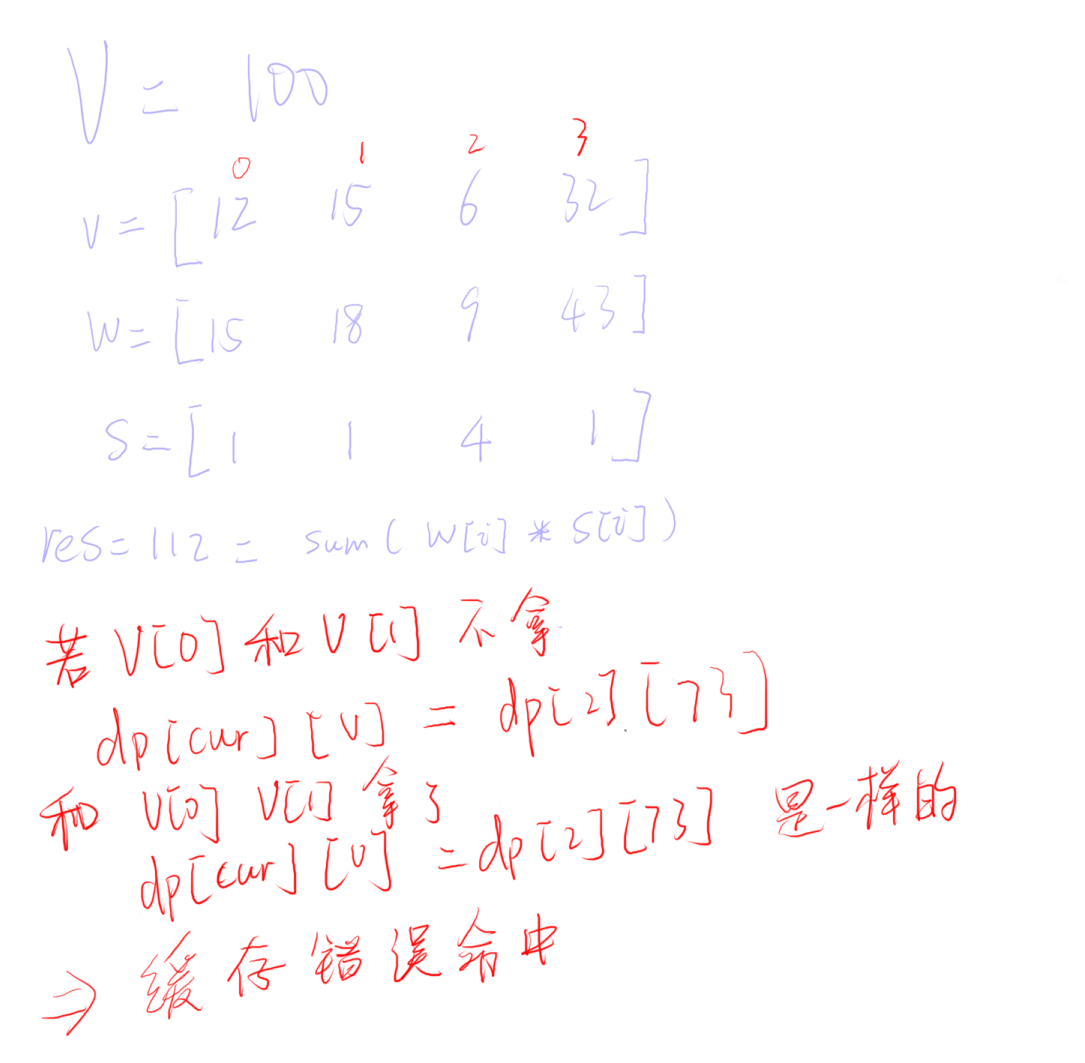 V = 100
0 1 2 3
v = [12 15 6 32]
w = [15 18 9 43]
s = [1 1 4 1]
res = 112 = sum( w[i] * s[i] )
若 V[0] 和 V[1] 不拿
dp[cur][V] = dp[2][73]
和 V[0] V[1] 拿了
dp[cur][V] = dp[2][73] 是一样的
⇒ 缓存错误命中